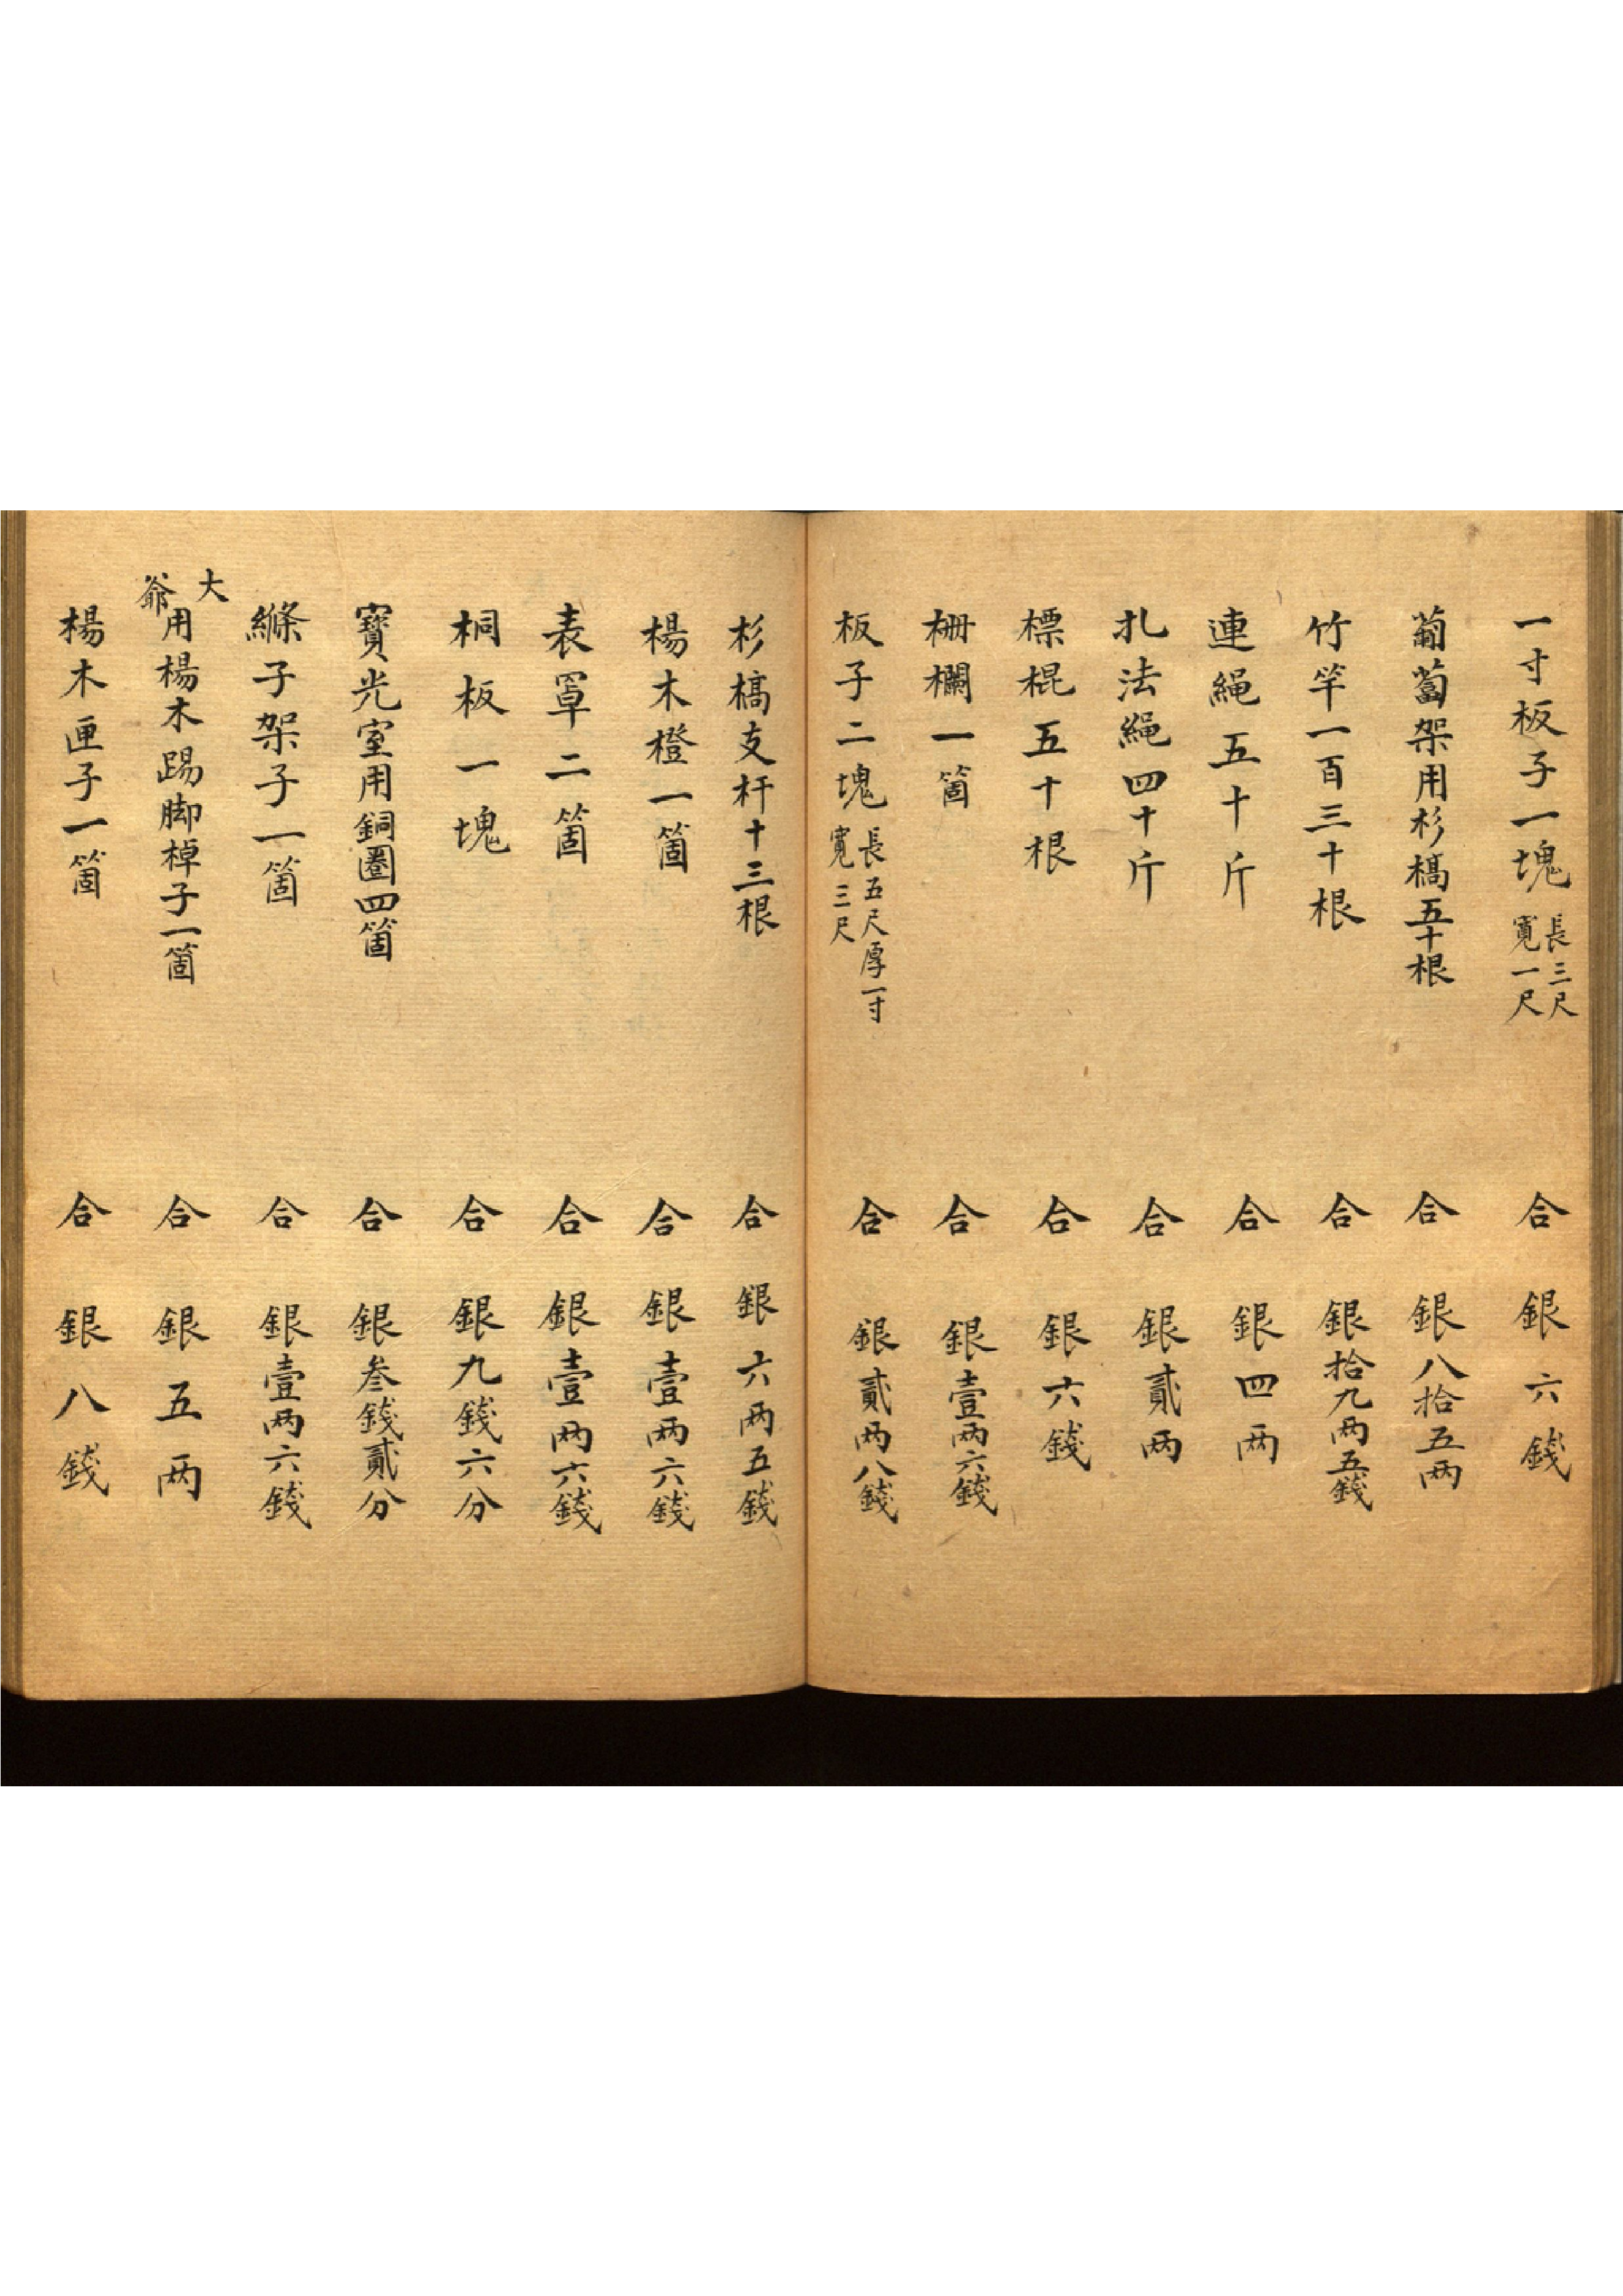 一寸板子一塊 長三尺寬一尺 合 銀六錢
葡萄架用杉槁五十根 合 銀八拾五两
竹竿一百三十根 合 銀拾九两五錢
連繩五十斤 合 銀四两
扎法繩四十斤 合 銀貳两
標棍五十根 合 銀六錢
栅欄一箇 合 銀壹两六錢
板子二塊 長五尺厚一寸寬三尺 合 銀貳两八錢
杉槁支杆十三根 合 銀六两五錢
楊木橙一箇 合 銀壹两六錢
表罩二箇 合 銀壹两六錢
桐板一塊 合 銀九錢六分
寶光室用銅圈四箇 合 銀叁錢貳分
縧子架子一箇 合 銀壹两六錢
大爺用楊木踢脚棹子一箇 合 銀五两
楊木匣子一箇 合 銀八錢